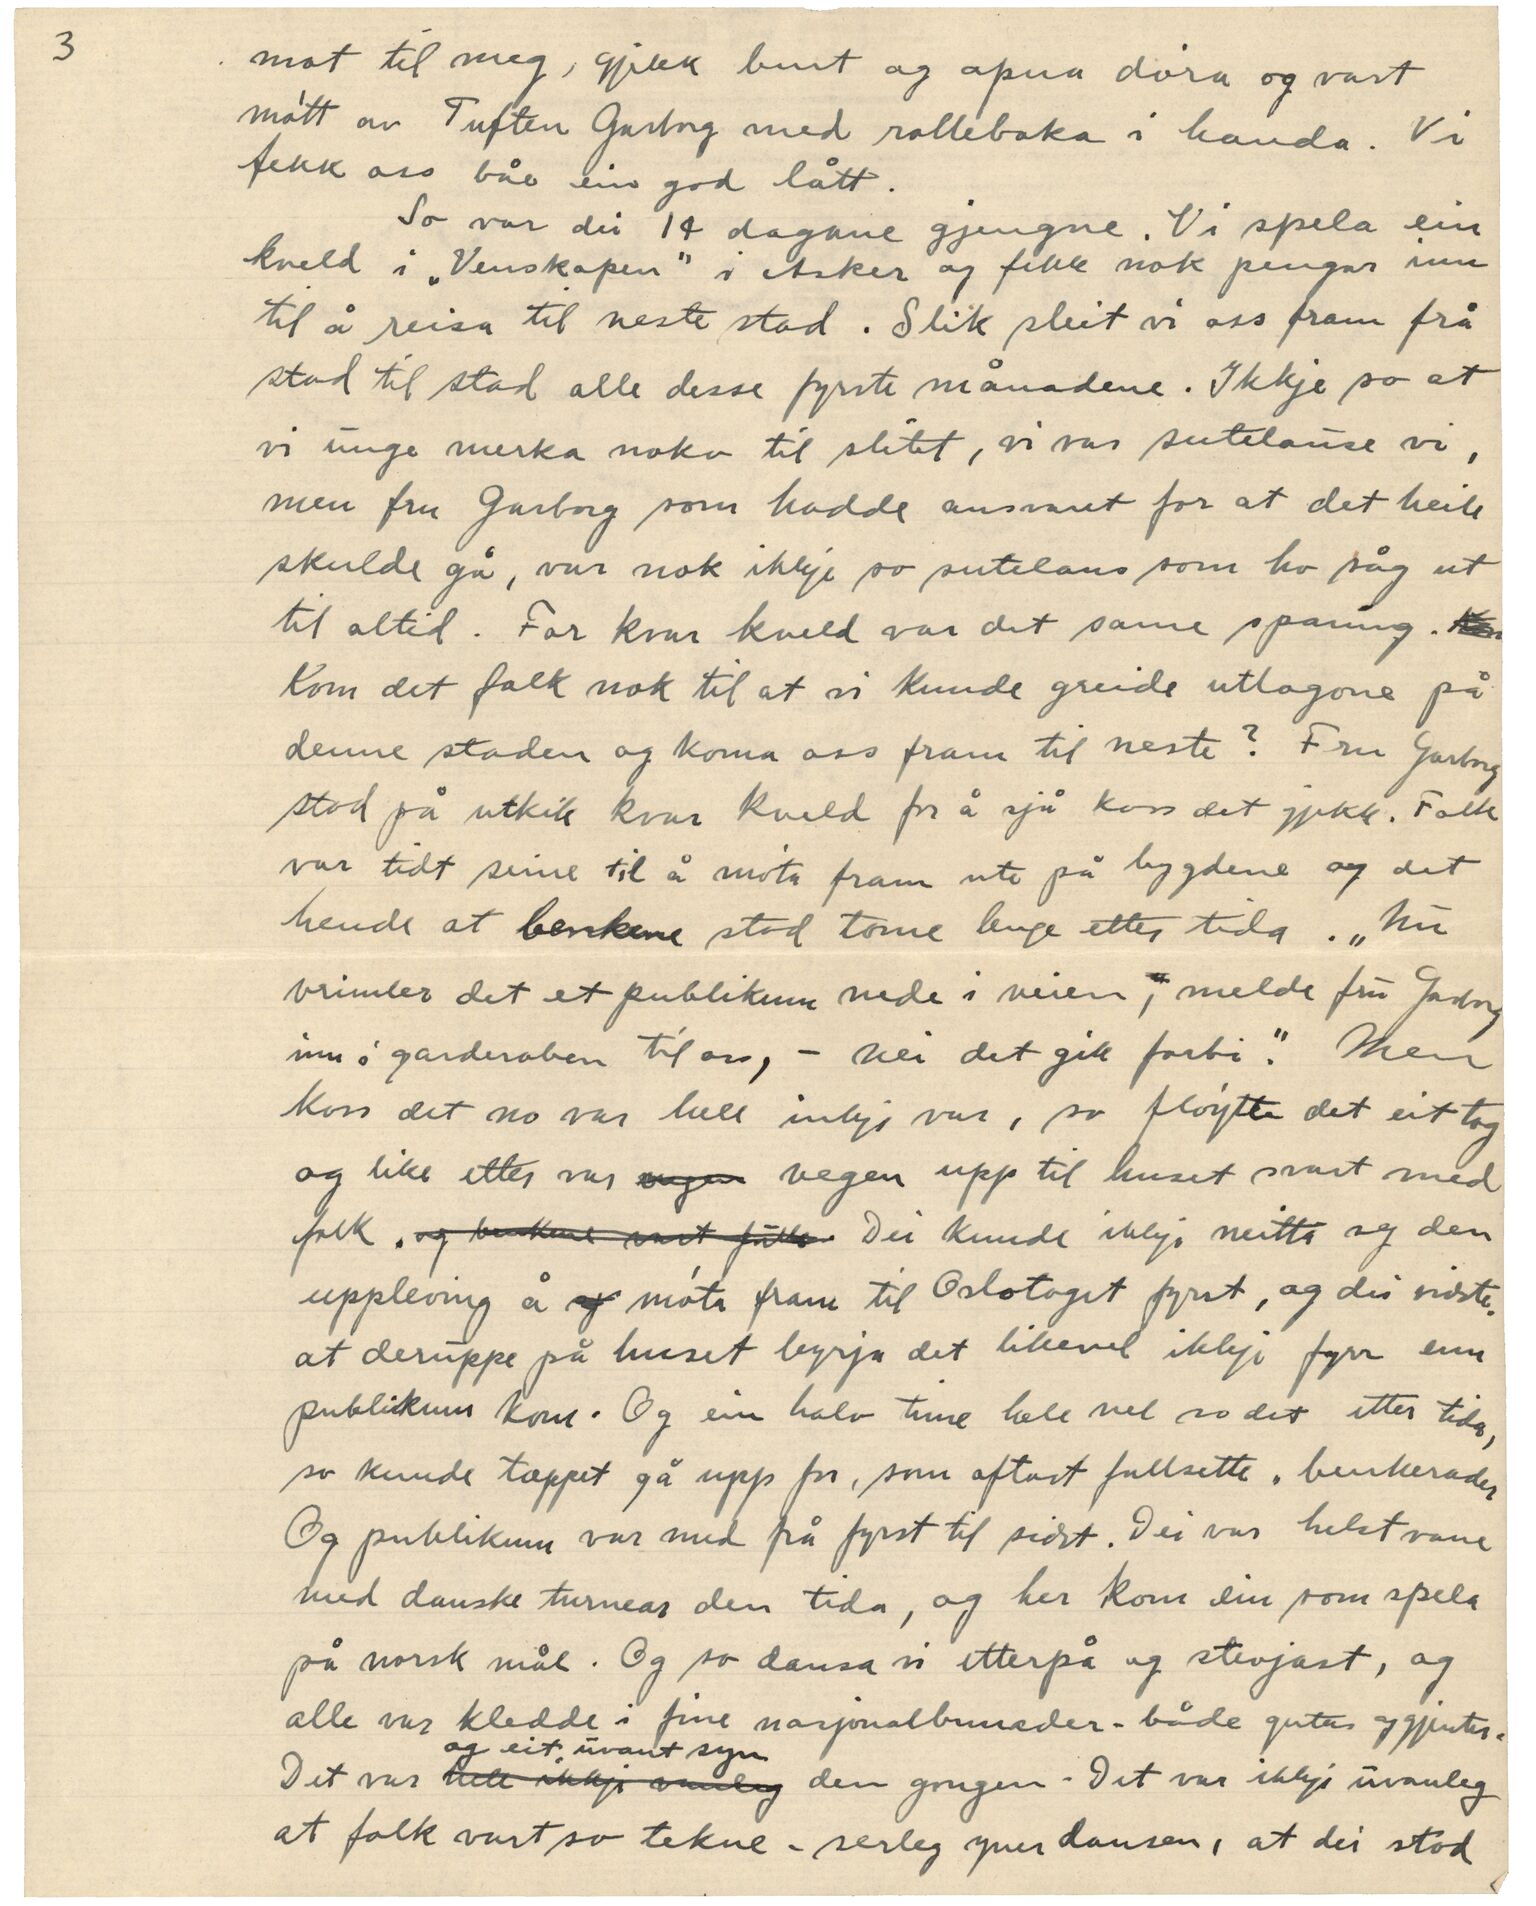 3
mot til meg, gjekk burt og opna döra og vart
mött av Tuften Garborg med rolleboka i handa. Vi
fekk oss båe ein god lått.
So var dei 14 dagane gjengne. Vi spela ein
kveld i „Venskapen" i Asker og fekk nok pengar inn
til å reisa til neste stad. Slik sleit vi oss fram frå
stad til stad alle desse fyrste månadene. Ikkje so at
vi unge merka noko til slitet, vi var sutelause vi,
men fru Garborg som hadde ansvaret for at det heile
skulde gå, var nok ikkje so sutelaus som ho såg ut
til altid. For kvar kveld var det same spaning. Kom
Kom det folk nok til at vi kunde greide utlogone på
denne staden og koma oss fram til neste? Fru Garborg
stod på utkik kvar kveld for å sjå koss det gjekk. Folk
var tidt seine til å möta fram ute på bygdene og det
hende at benkene stod tome lenge etter tida. „Nu
vrimler det et publikum nede i veien", melde fru Garborg
inn i garderoben til oss, – nei det gik forbi". Men
koss det no var hell inkje var, so flöytte det eit tog
og like etter var vegen vegen upp til huset svart med
folk. og benkene vart fulle. Dei kunde ikkje neitta seg den
uppleving å möta fram til Oslotoget fyrst, og dei visste
at deruppe på huset byrja det likevel ikkje fyrr enn
publikum kom. Og ein halv time hell vel so det etter tida,
so kunde tæppet gå upp for, som oftast fullsette, benkerader
Og publikum var med frå fyrst til sidst. Dei var helst vane
med danske turnear den tida, og her kom ein som spela
på norsk mål. Og so dansa vi etterpå og stevjast, og
alle var kledde i fine nasjonalbunader – både gutar og gjentor.
og eit uvant syn
Det var hell ikkje vanleg den gongen. Det var ikkje uvanleg
at folk vart so tekne – serleg yver dansen, at dei stod